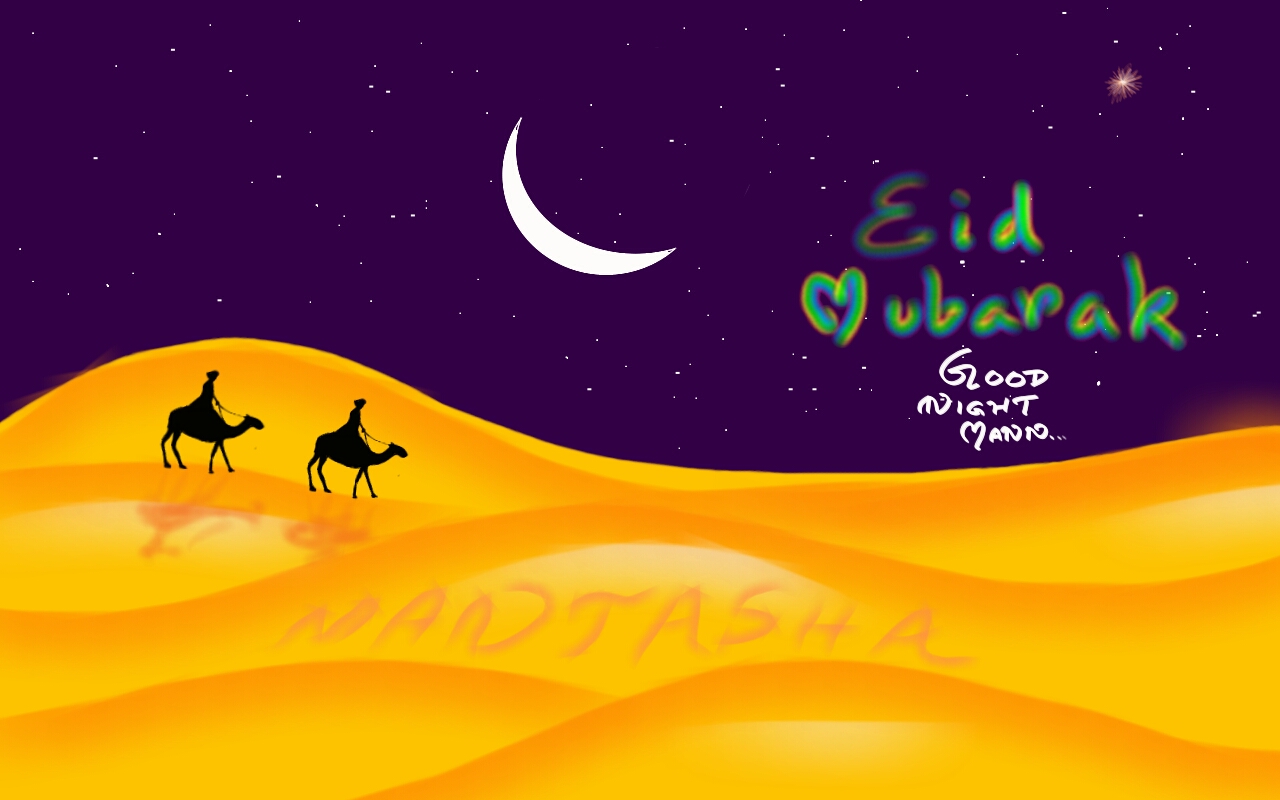 Eid
Mubarak
GOOD
NIGHT
MANN...
NANTASHA